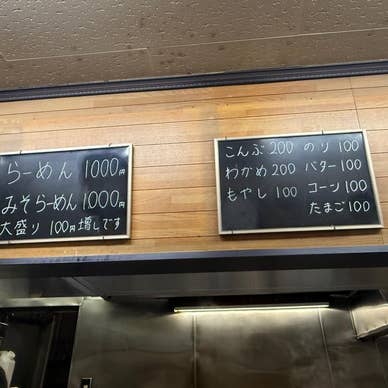 らーめん 1000円
みそらーめん 1000円
大盛り 100円増しです
こんぶ 200 のり 100
わかめ 200 バター 100
もやし 100 コーン 100
たまご 100